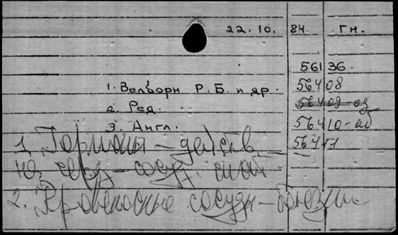 22.10. 84 Гн.
56136.
1. Велборн Р. Б. и др. 56408
2. Ред. 56409-аз
3. Англ. 56410-аб
56411
1. Гормоны – действ.
на серд.-сосуд. сист.
2. Кровеносные сосуды – болезни